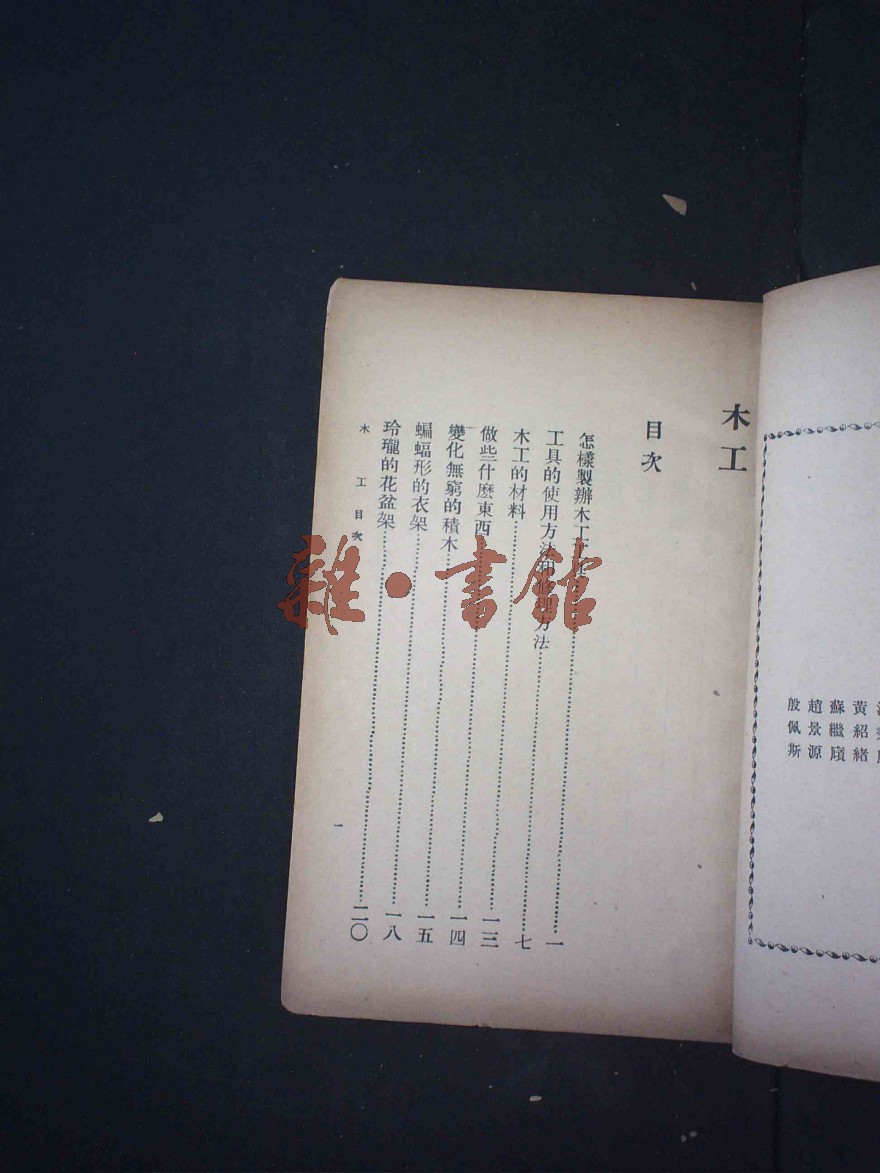 黃紹緒
蘇繼廎
趙景源
殷佩斯
木工
目次
怎樣製辦木工……一
工具的使用方法和修理方法……七
木工的材料……一三
做些什麼東西……一四
變化無窮的積木……一五
蝙蝠形的衣架……一八
玲瓏的花盆架……二〇
木工 目次
一
雜·書館